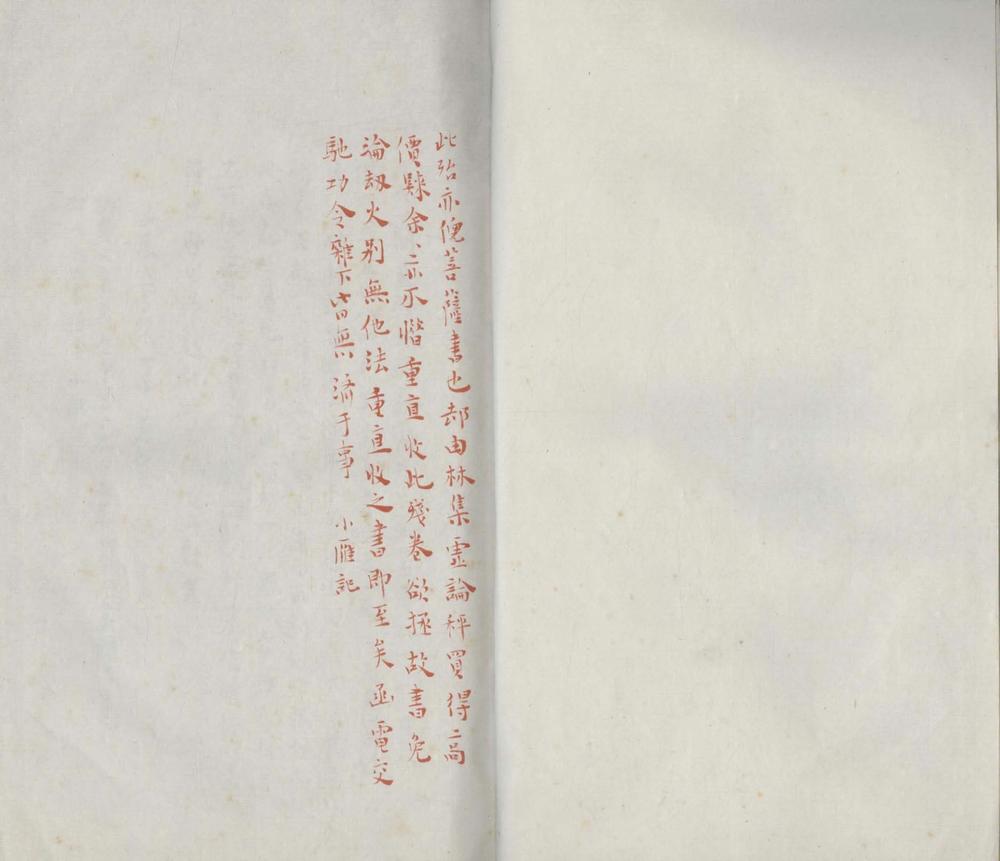 此殆亦倪菩薩書也却由林集虛論秤買得高
價賕余〻亦不惜重直收此殘卷欲拯故書免
淪劫火别無他法重直收之書即至矣函電交
馳功令雜下皆無濟于事 小雁記